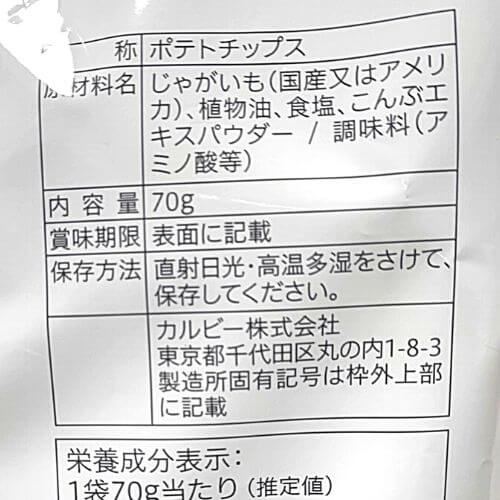 称 ポテトチップス
原材料名 じゃがいも（国産又はアメリ
カ）、植物油、食塩、こんぶエ
キスパウダー / 調味料（ア
ミノ酸等）
内容量 70g
賞味期限 表面に記載
保存方法 直射日光・高温多湿をさけて、
保存してください。
カルビー株式会社
東京都千代田区丸の内1-8-3
製造所固有記号は枠外上部
に記載
栄養成分表示：
1袋70g当たり（推定値）